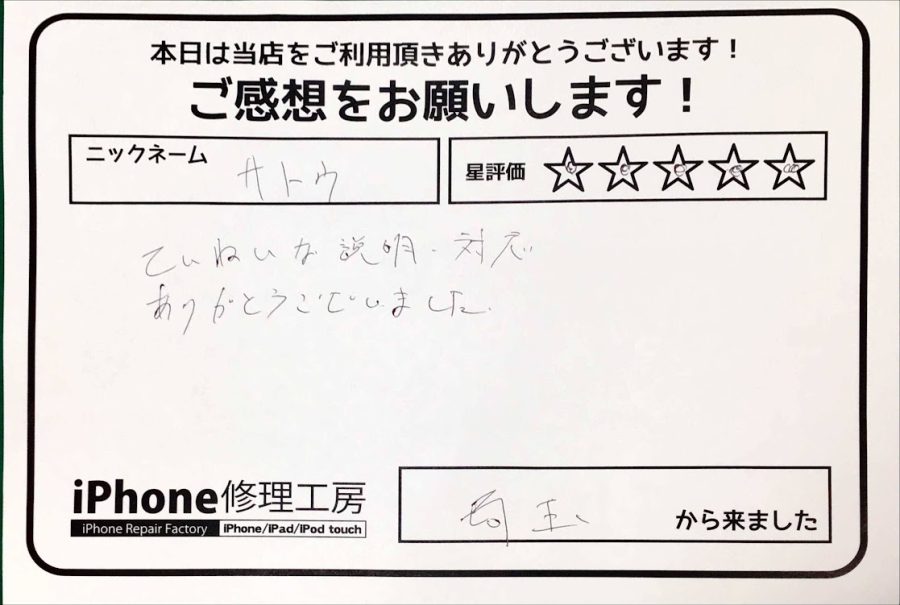 本日は当店をご利用頂きありがとうございます！
ご感想をお願いします！
ニックネーム サトウ
星評価
ていねいな説明・対応
ありがとうございました
iPhone修理工房
iPhone Repair Factory iPhone/iPad/iPod touch
埼玉 から来ました